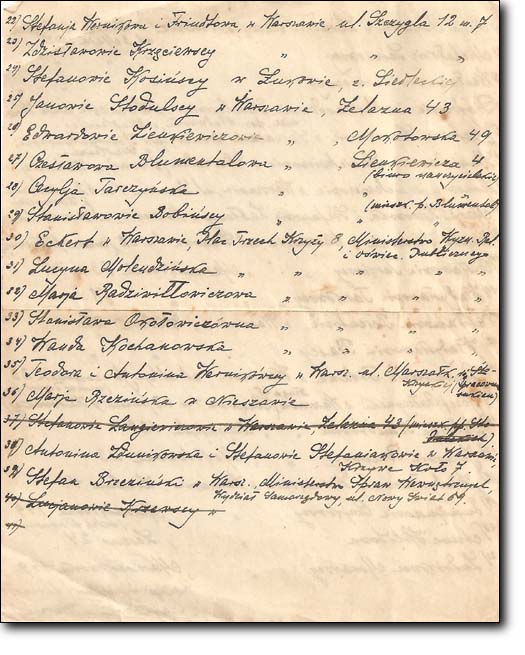 22) Stefanja Wernikowa i Friedtowa, w Warszawie, ul. Szczygla 12 m. 7
23) Zdzisławowie Krzęciewscy " " "
24) Stefanowie Kosińscy w Łukowie, z. Siedleckiej
25) Janowie Stodulscy w Warszawie, Żelazna 43
26) Edwardowie Zienkiewiczowie " " Mokotowska 49
27) Czesławowa Blumentalowa " " Sienkiewicza 4
(biuro nauczycielskie)
28) Cecylja Tarczyńska " " "
(mieszk. p. Blumental)
29) Stanisławowie Bobińscy " " "
30) Eckert w Warszawie, Plac Trzech Krzyży 8, Ministerstwo Wyzn. Rel.
i Oświec. Publicznego
31) Lucyna Molendzińska " " " "
32) Marja Radziwiłłowiczowa " " " "
33) Stanisława Okołowiczówna " " " "
34) Wanda Kochanowska " " " "
35) Teodora i Antonina Wernikówny w Warsz. ul. Marszałk.
36) Marja Rzezińska w Nieszawie
37) Stefanowie Langierowie w Warszawie Żelazna 43 (mieszk. pp. Sto-
dulskich)
38) Antonina Żdunikowska i Stefanowie Stefaniakowie w Warszawie,
Krzywe Koło 7
39) Stefan Brzeziński w Warsz., Ministerstwo Spraw Wewnętrznych,
Wydział Samorządowy, ul. Nowy Świat 69.
40) Lucjanowie Krzewscy "
41)